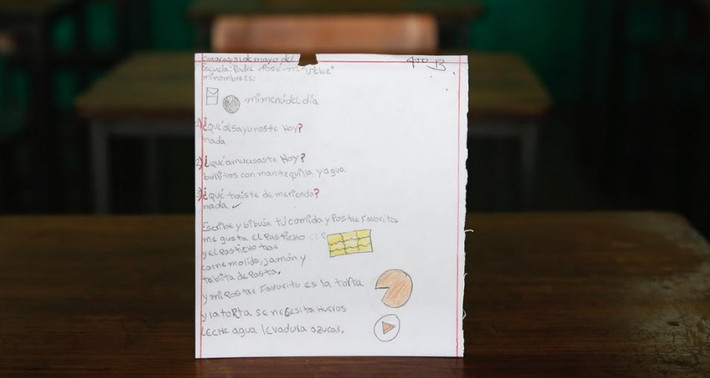 Caracas 31 de mayo del
Escuela Padre José M. "Vélaz"
minombre es:
4to B.
mi menú del día
1) ¿qué desayunaste Hoy?
nada
2) ¿qué almorzaste Hoy?
bollitos con mantequilla y agua.
3) ¿qué traiste de merienda?
nada
Escribe y dibuja tu comida y Postre Favorito
me gusta el Pasticho
y el Pasticho trae
carne molida, jamón y
tablita de Pasta.
y mi Postre Favorito es la torta
y la torta se necesita Huevos
LECHE agua levadura azucar.